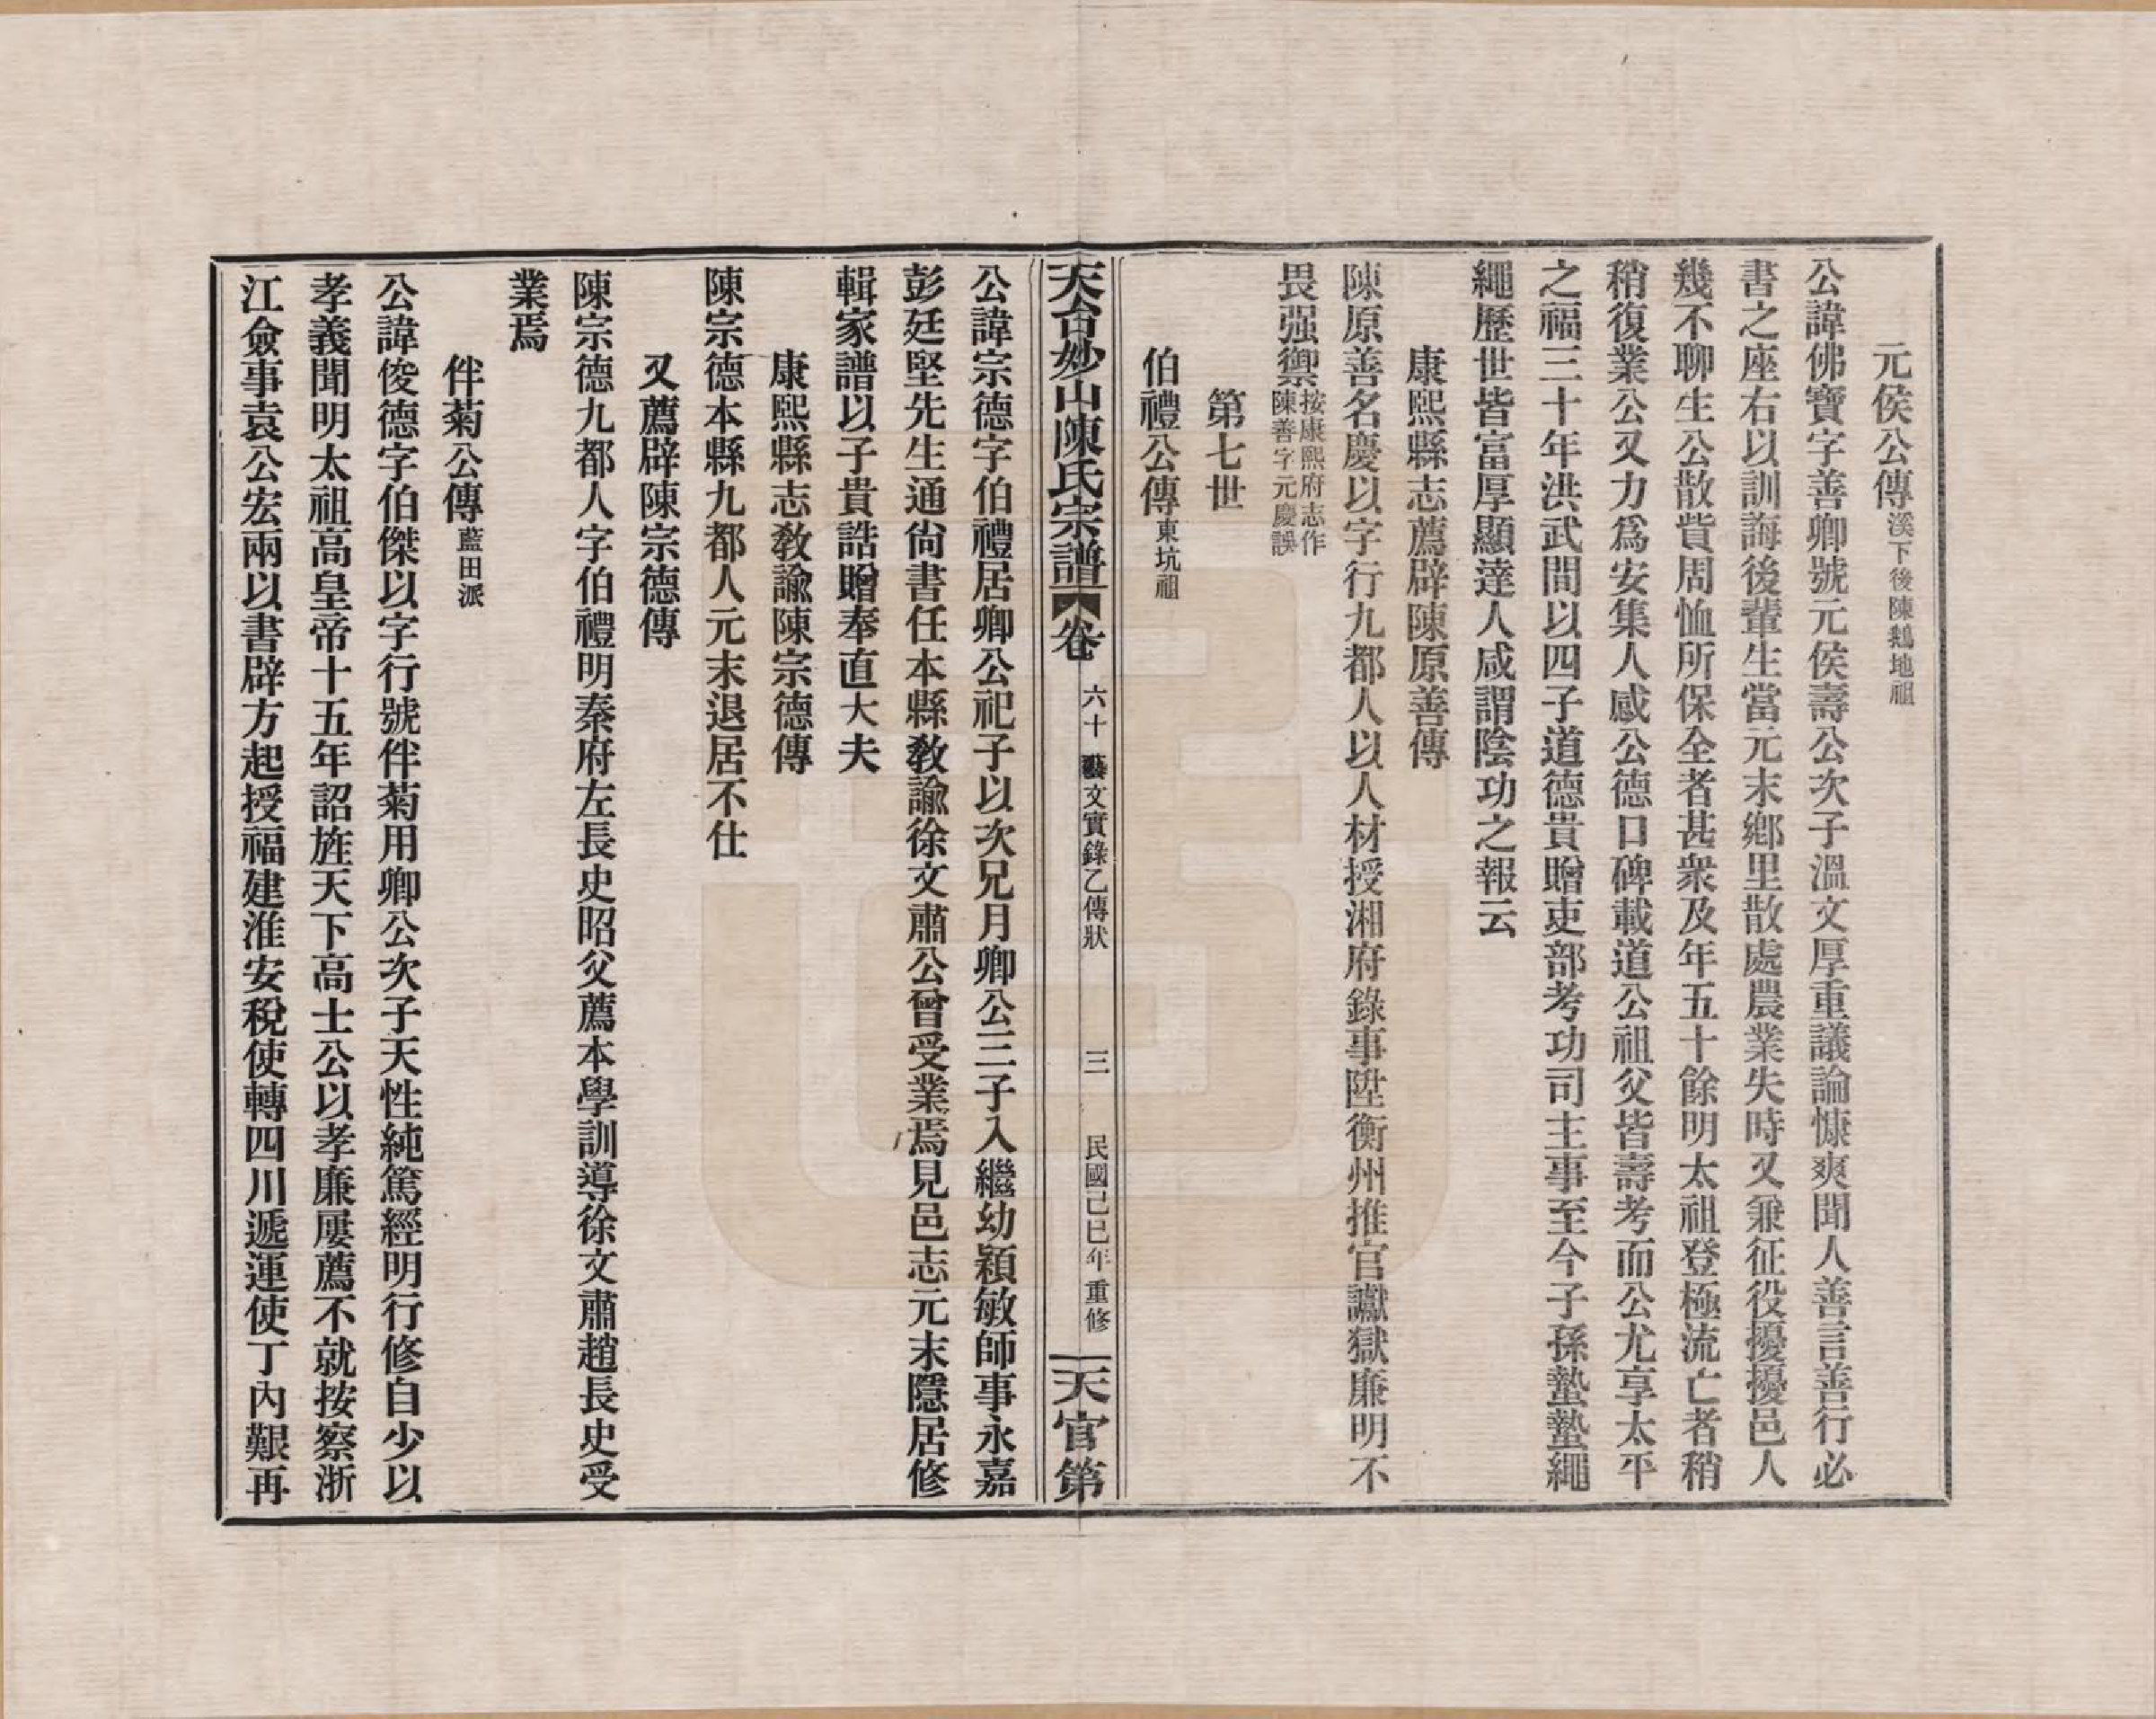 元侯公傳溪下後陳鵝地祖
公諱佛寶字善卿號元侯壽公次子溫文厚重議論慷爽聞人善言善行必
書之座右以訓誨後輩生當元末鄉里散處農業失時又兼征役擾擾邑人
幾不聊生公散貲周恤所保全者甚衆及年五十餘明太祖登極流亡者稍
稍復業公又力爲安集人感公德口碑載道公祖父皆壽考而公尤享太平
之福三十年洪武間以四子道德貴贈吏部考功司主事至今子孫蟄蟄繩
繩歷世皆富厚顯達人咸謂陰功之報云
康熙縣志薦辟陳原善傳
陳原善名慶以字行九都人以人材授湘府錄事陞衡州推官讞獄廉明不
畏强禦按康熙府志作陳善字元慶誤
第七世
伯禮公傳東坑祖
天台妙山陳氏宗譜 卷六十 藝文實錄乙傳狀 三 民國己巳年重修 天官第
公諱宗德字伯禮居卿公祀子以次兄月卿公三子入繼幼穎敏師事永嘉
彭廷堅先生通尙書任本縣敎諭徐文肅公曾受業焉見邑志元末隱居修
輯家譜以子貴誥贈奉直大夫
康熙縣志敎諭陳宗德傳
陳宗德本縣九都人元末退居不仕
又薦辟陳宗德傳
陳宗德九都人字伯禮明秦府左長史昭父薦本學訓導徐文肅趙長史受
業焉
伴菊公傳藍田派
公諱俊德字伯傑以字行號伴菊用卿公次子天性純篤經明行修自少以
孝義聞明太祖高皇帝十五年詔旌天下高士公以孝廉屢薦不就按察浙
江僉事袁公宏兩以書辟方起授福建淮安稅使轉四川遞運使丁內艱再